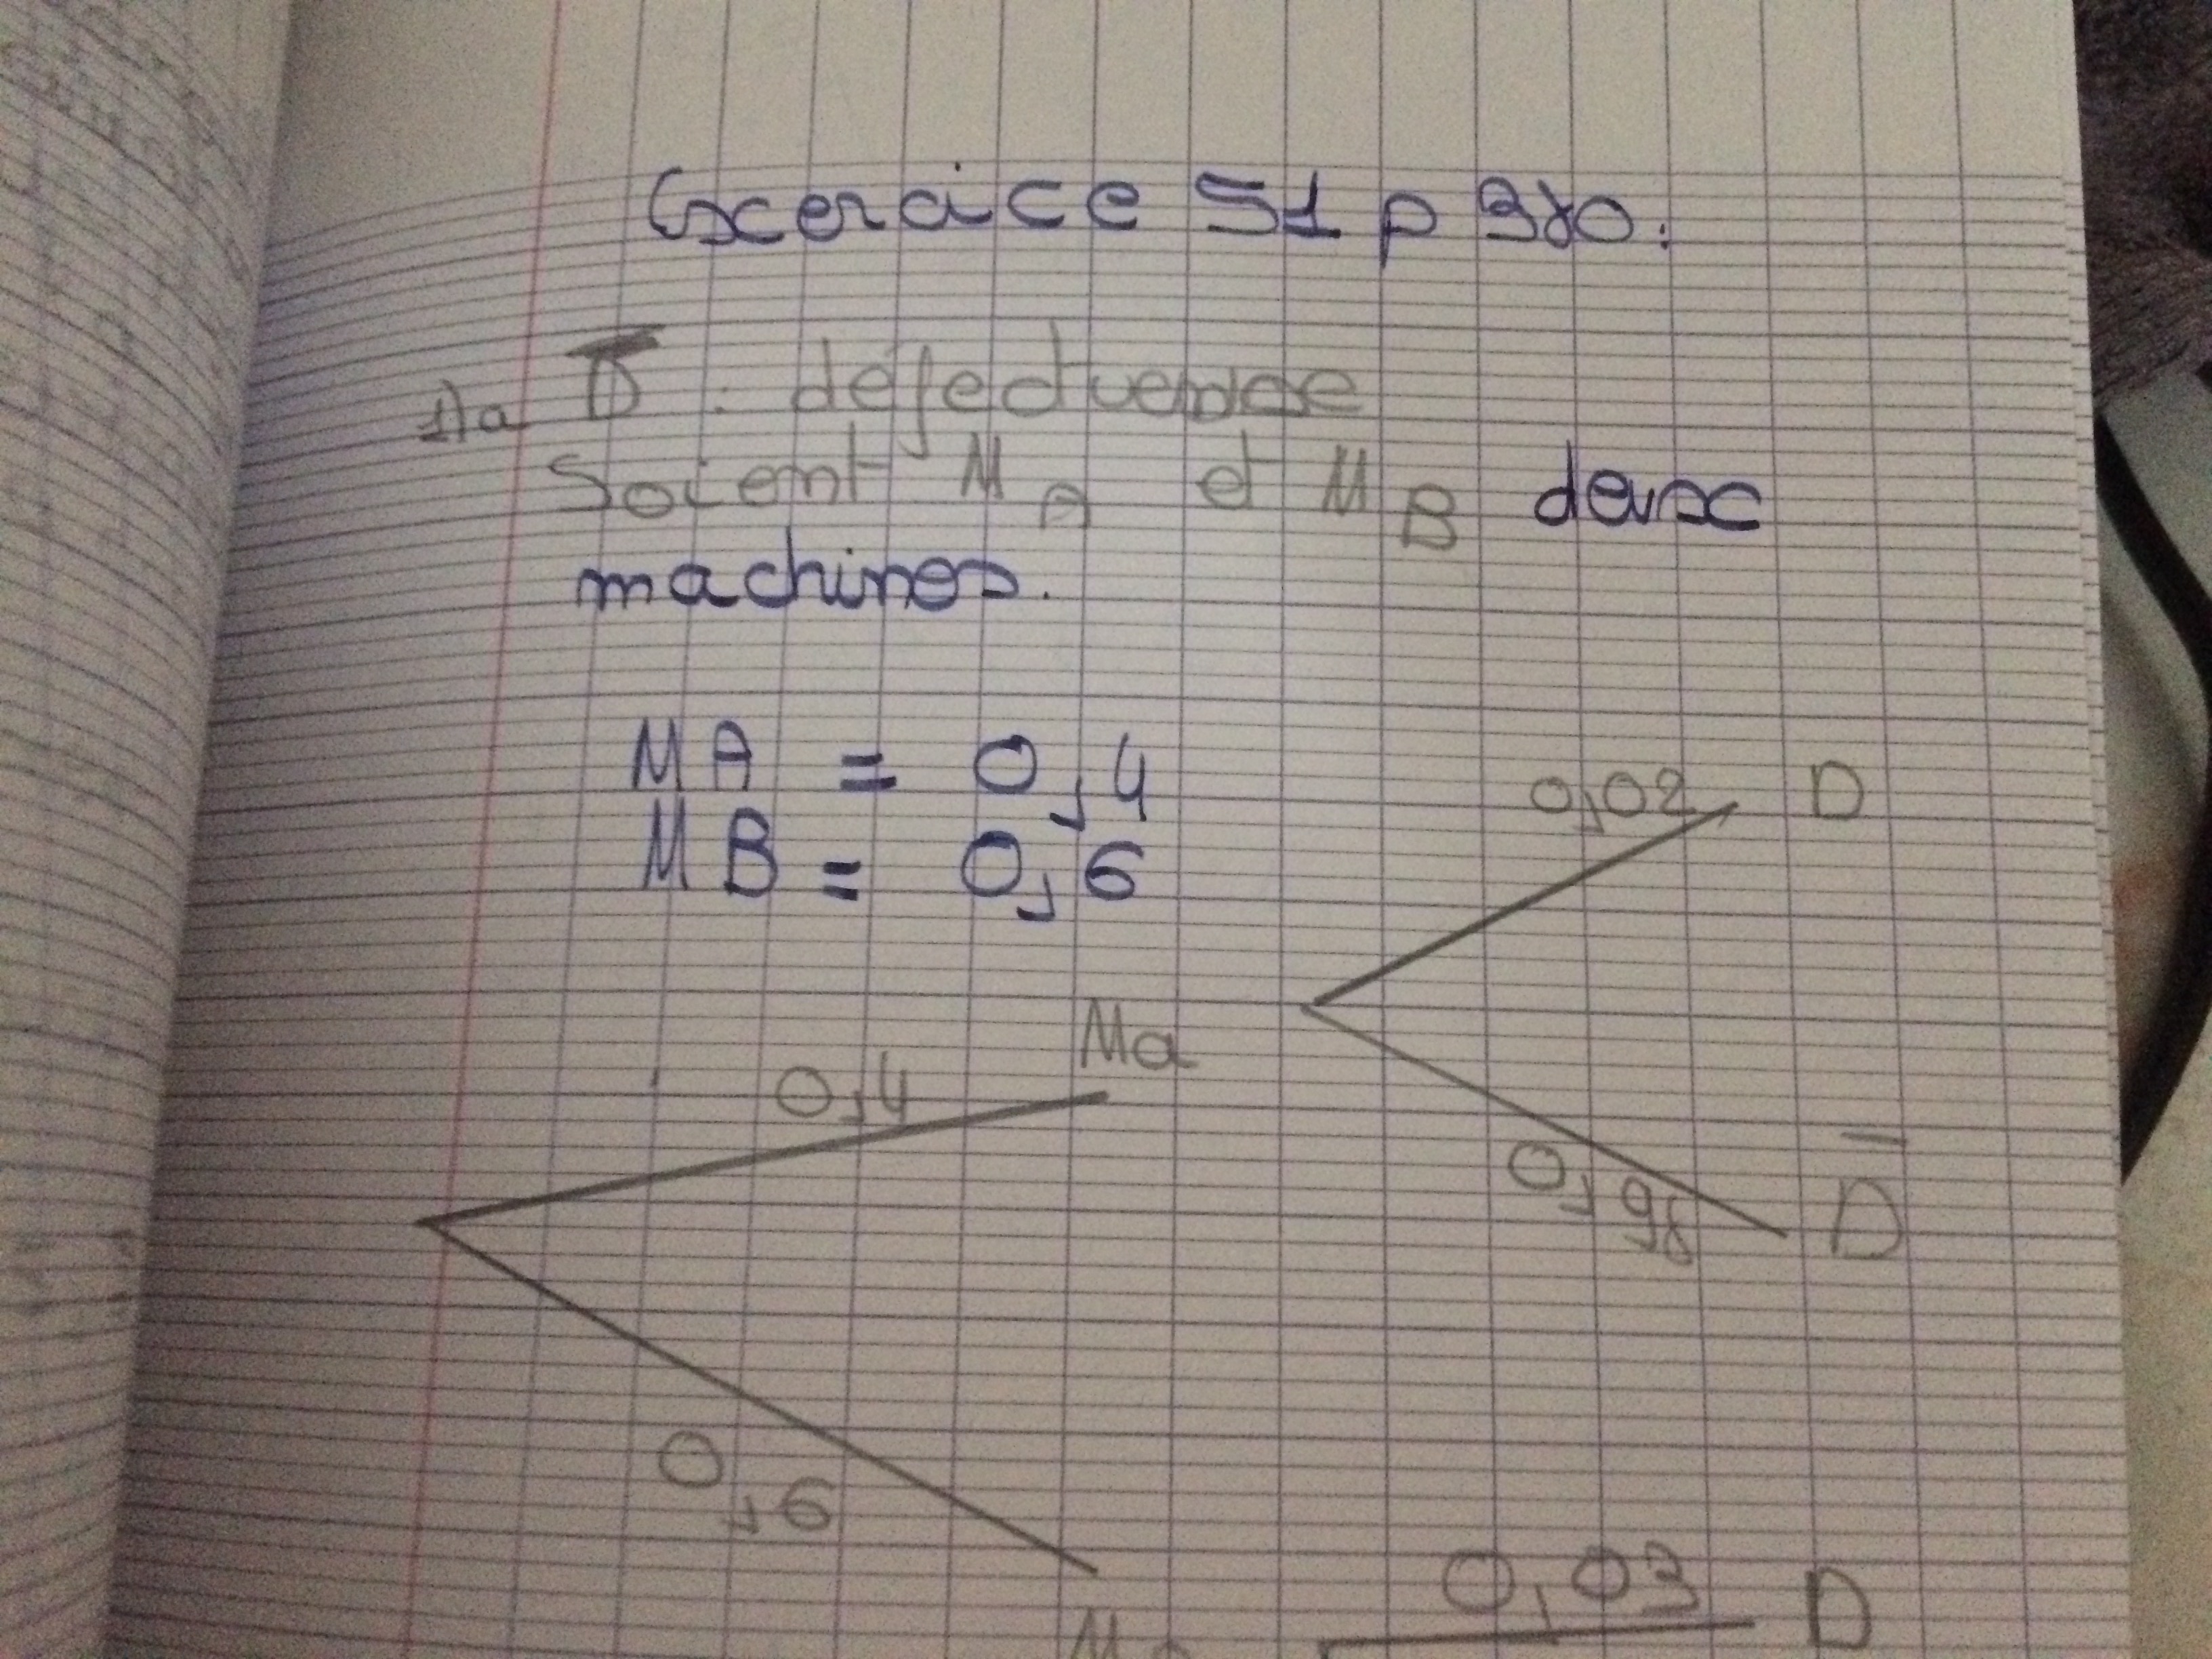 Exercice 51 p 380.
1)a D̅ : défectueuse
Soient M A et M B deux
machines.
MA = 0,4
MB = 0,6
0,02 D
Ma
0,4
0,98 D̅
0,6
0,03 D